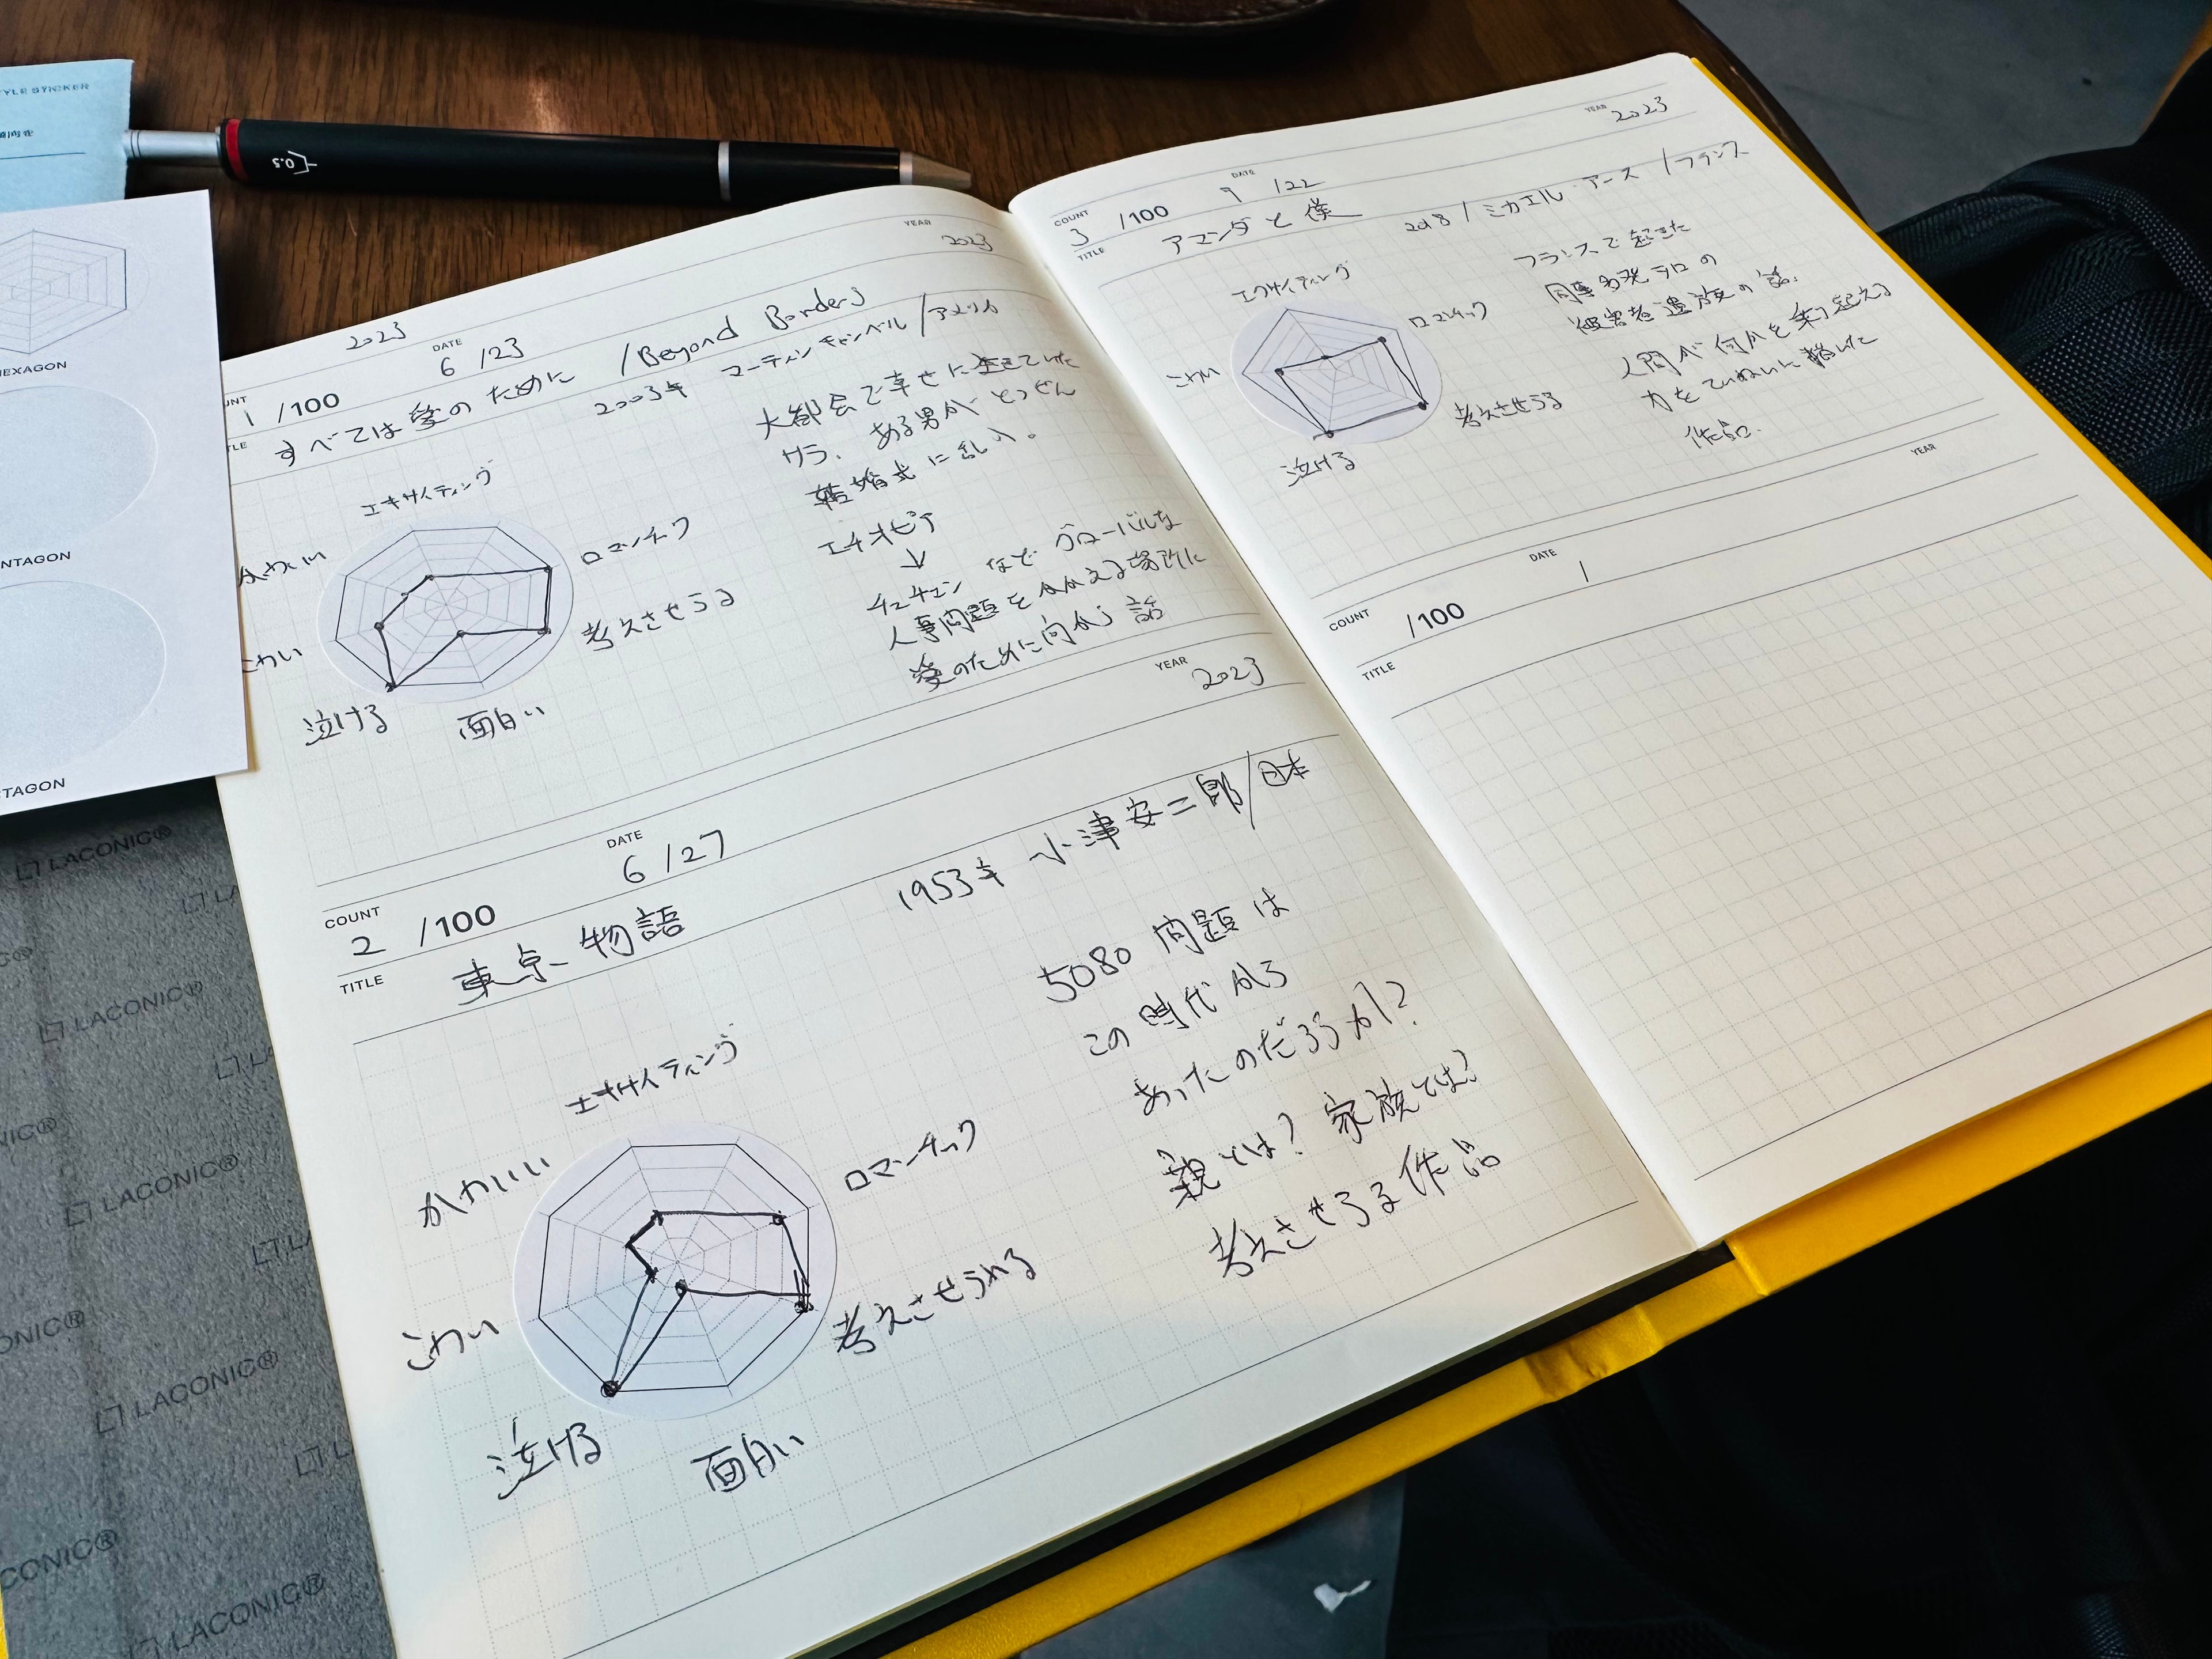 TYLE STICKER
HEXAGON
NTAGON
TAGON
0.5
LACONIC®
LACONIC®
LACONIC®
LACONIC®
LACONIC®
LACONIC®
YEAR
2023
2023
DATE
6/23
1 /100
すべては愛のために /Beyond Borders
2003年 マーティン キャンベル/アメリカ
エキサイティング
ロマンチック
考えさせらる
面白い
泣ける
こわい
かわいい
大都会で幸せに生きていた
サラ、ある男がとつぜん
結婚式に乱入。
エチオピア
↓
チェチェン などグローバルな
人事問題をかかえる場所に
愛のために向かう話
YEAR
2023
COUNT
DATE
2 /100
6/27
TITLE
東京物語
1953年 小津安二郎/日本
エキサイティング
ロマンチック
考えさせられる
面白い
泣ける
こわい
かわいい
5080問題は
この時代から
あったのだろうか?
親とは? 家族とは?
考えさせらる作品
YEAR
2023
COUNT
DATE
3 /100
/22
TITLE
アマンダと僕
2018/ミカエル・アース/フランス
エクサイティング
ロマンチック
考えさせらる
泣ける
こわい
フランスで起きた
同事多発テロの
被害者遺族の話。
人間が何かを乗り越える
力をていねいに描いた
作品。
YEAR
COUNT
DATE
/100
/
TITLE